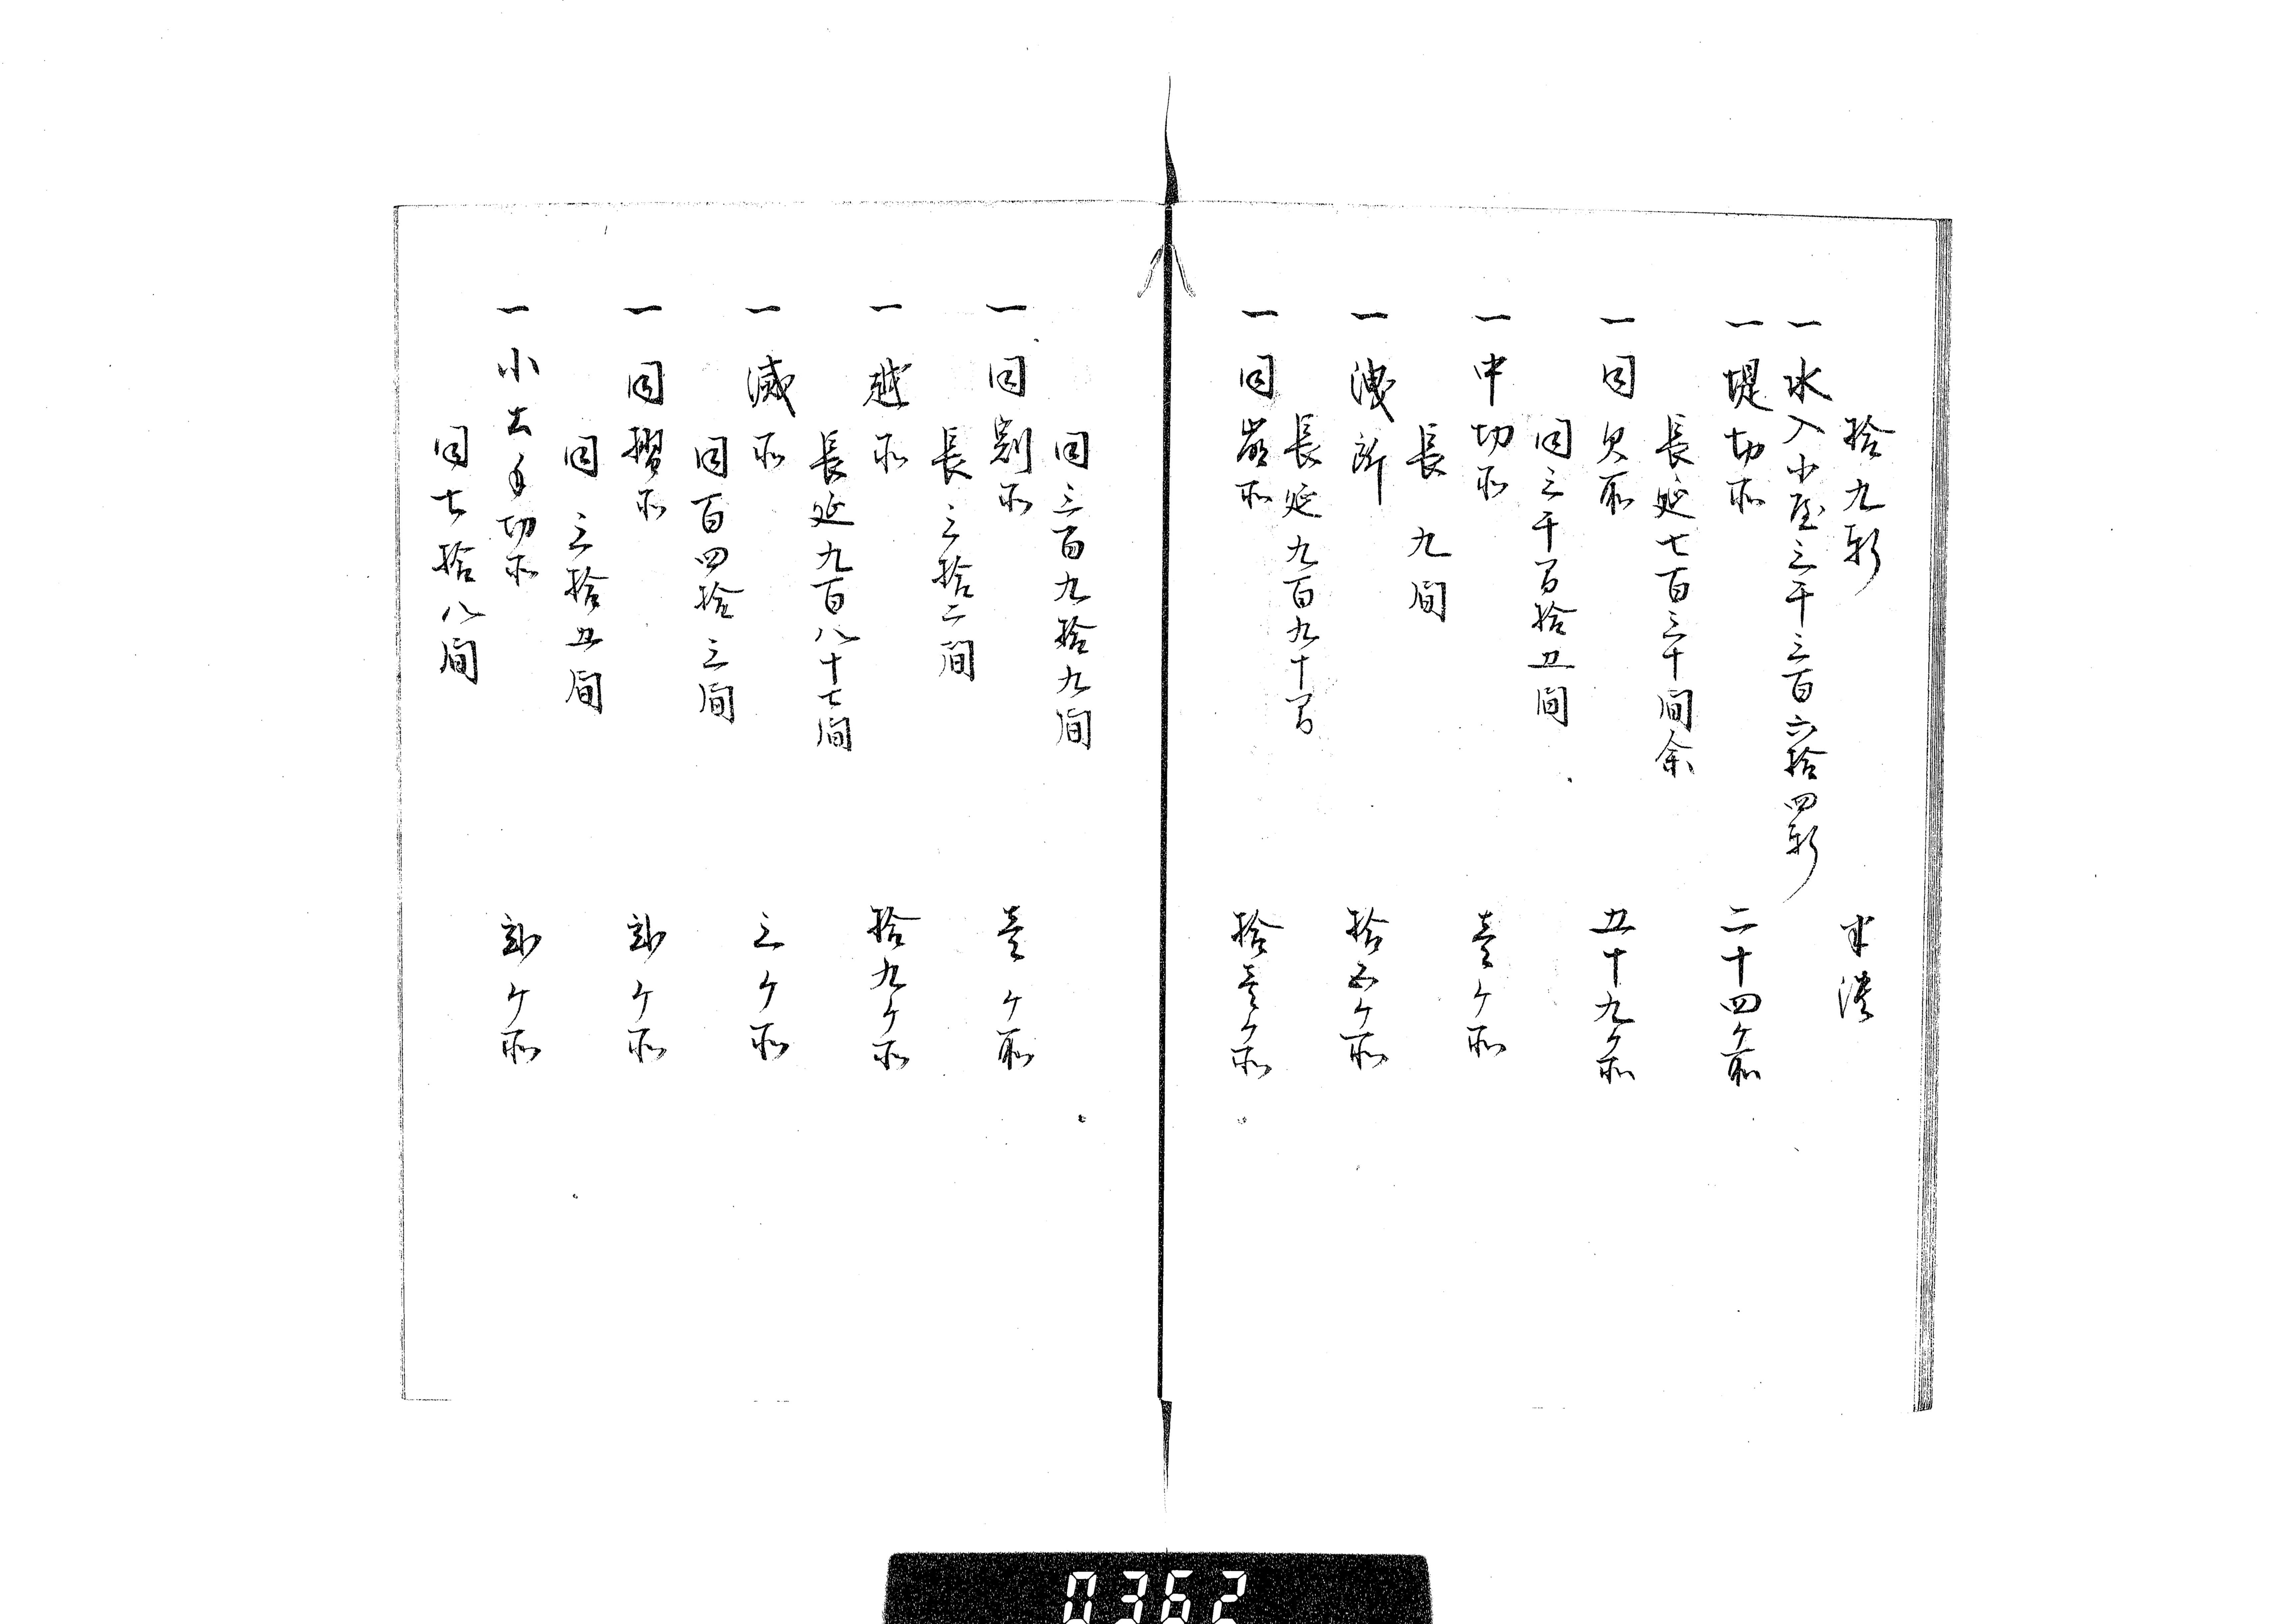 拾九軒　半潰
一水入小屋三千三百六拾四軒
一堤切所　二十四ケ所
長延七百三十間余
一同欠所　五十九ケ所
同三千百拾五間
一中切所　壱ケ所
長　九間
一洩所　拾五ケ所
長延九百九十間
一同崩所　拾壱ケ所
同三百九拾九間
一同割所　壱ケ所
長三拾二間
一越所　拾九ケ所
長延九百八十七間
一減所　三ケ所
同百四拾三間
一同摺所　弐ケ所
同三拾五間
一小土手切所　弐ケ所
同七拾八間
0362